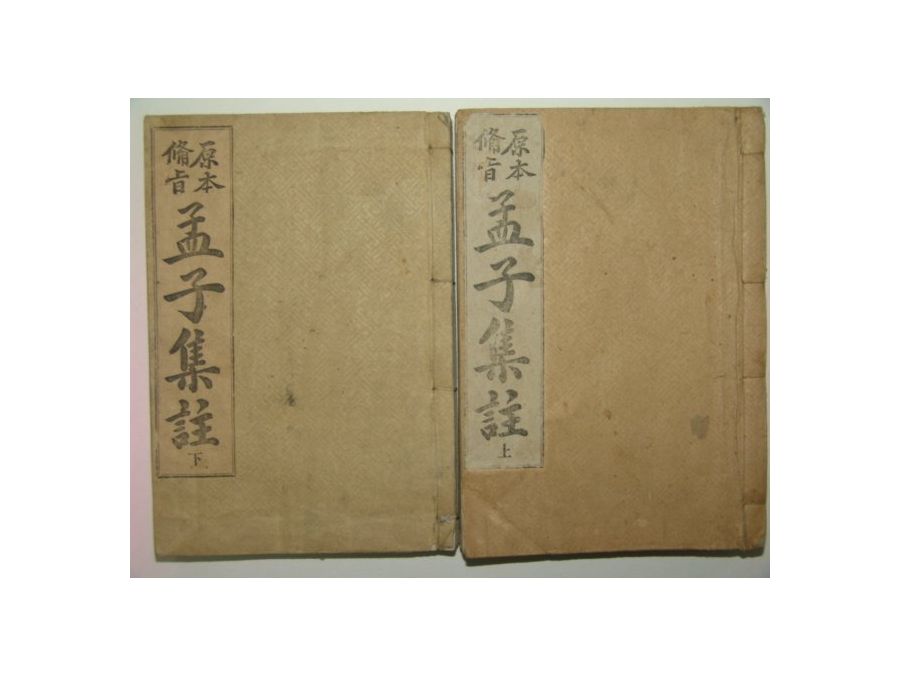 原本
備旨
孟子集註
上
原本
備旨
孟子集註
下